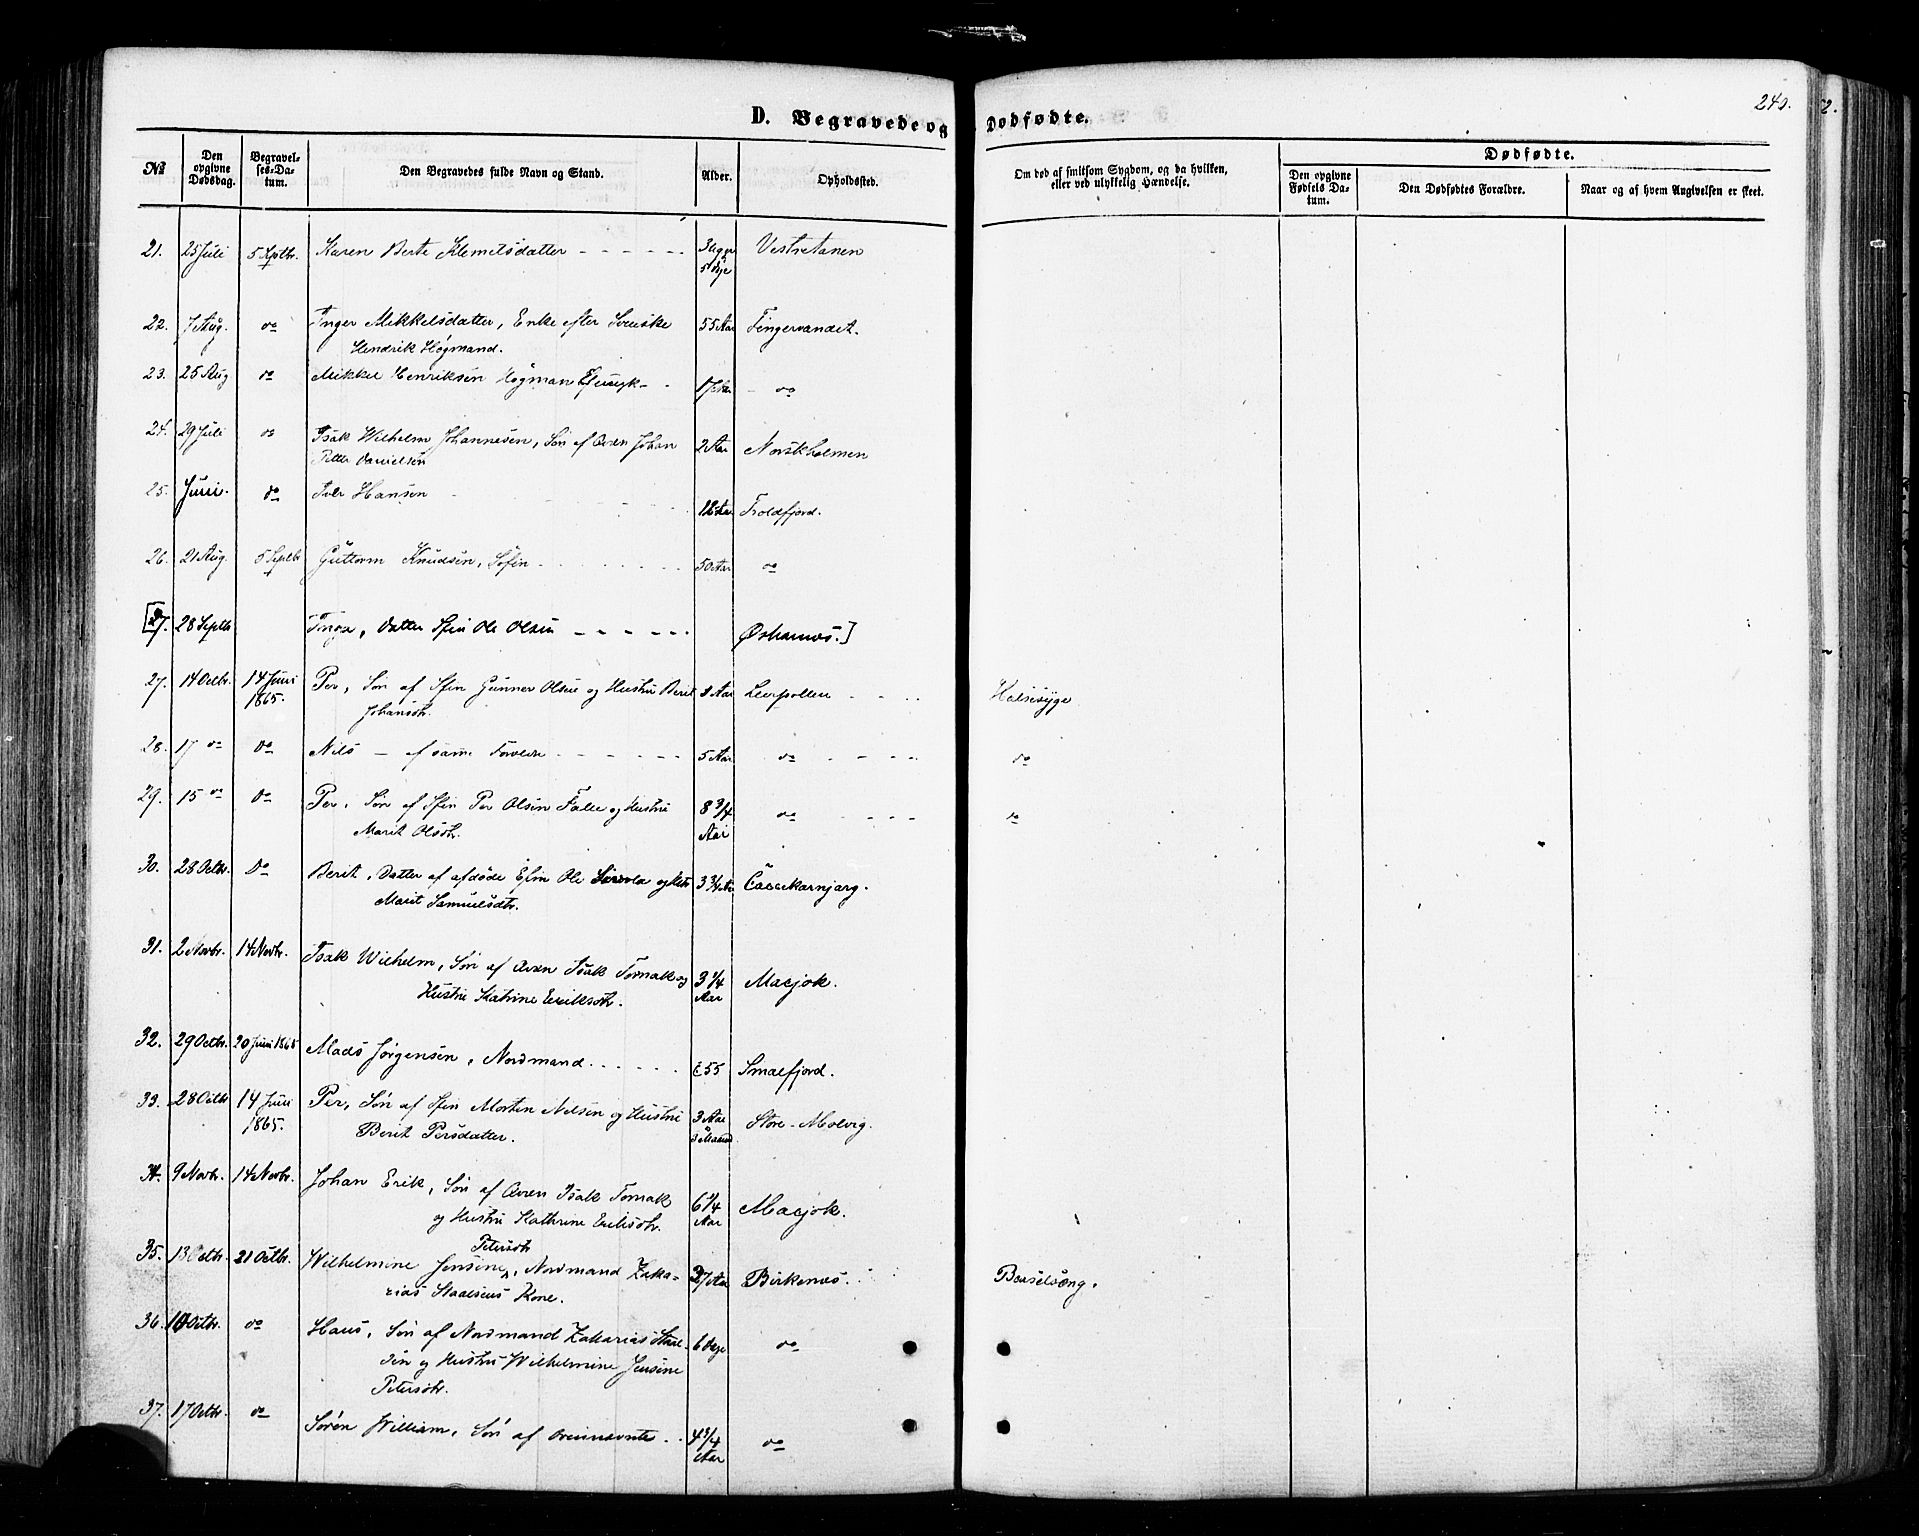 240.
D. Begravede og Dødfødte.
№ Den opgivne Dødsdag. Begravelses-Datum. Den Begravedes fulde Navn og Stand. Alder. Opholdssted. Om død af smitsom Sygdom, og da hvilken, eller ved ulykkelig Hændelse. Dødfødte. Den opgivne Fødsels Datum. Den Dødfødtes Forældre. Naar og af hvem Angivelsen er skeet.
21. 25 Juli 5 Septbr. Karen Berte Klemetsdatter 3 Uger 5 Dge Vestretanen
22. 7 Aug. do Inger Mikkelsdatter, Enke efter Svenske 55 Aar Fingervandet.
Hendrik Høgmand.
23. 25 Aug do Mikkel Henriksen Høgman 17 Aar do
24. 29 Juli do Isak Wilhelm Johannesen, Søn af Qvæn Johan 2 Aar Norskholmen
Petter Danielsen
25. Juni. do Iver Hansen 12 Aar Troldfjord.
26. 21 Aug. 5 Septbr Guttorm Knudsen, Søfin 50 Aar do
[27. 28 Septbr Inga, Datter Sfin Ole Olsen Østernes.]
27. 14 Octbr. 14 Juni 1865. Per, Søn af Sfin Gunner Olsen og Hustru Berit 3 Aar Leirpollen Halssyge
Johansdtr.
28. 17 do do Nils — af sam. Forældre 5 Aar do do
29. 15 do do Per, Søn af Sfin Per Olsen Falle og Hustru 8 3/4 Aar do do
Marit Olsdtr.
30. 28 Octbr. do Berit, Datter af afdøde Efin Ole og Hst. 3 3/4 Aar Caccekarnjarg.
Marit Samuelsdtr.
31. 2 Novbr. 14 Novbr. Isak Wilhelm, Søn af Qvæn Isak Tornak og 3 1/4 Aar Macjok.
Hustru Katrine Eriksdtr.
32. 29 Octbr. 20 Juni 1865 Mads Jørgensen, Nordmand c. 55 Smalfjord.
33. 28 Octbr 14 Juni 1865. Per, Søn af Sfin Morten Nilsen og Hustru 3 Aar 3 Maaned Store-Molvig.
Berit Persdatter.
34. 9 Novbr. 14 Novbr. Johan Erik, Søn af Qvæn Isak Tornak 6 1/4 Aar Macjok.
og Hustru Kathrine Eriksdtr.
Petersdtr
35. 13 Octbr. 21 Octbr. Wilhelmine Jensine, Nordmand Zaka- 37 Aar Birkenes. Barselseng.
rias Staalsens Kone.
36. 10 Octbr. do Hans, Søn af Nordmand Zakarias Staal- 6 Dge do
sen og Hustru Wilhelmine Jensine
Petersdtr.
37. 17 Octbr. do Søren William, Søn af Ovennævnte 4 3/4 Aar do